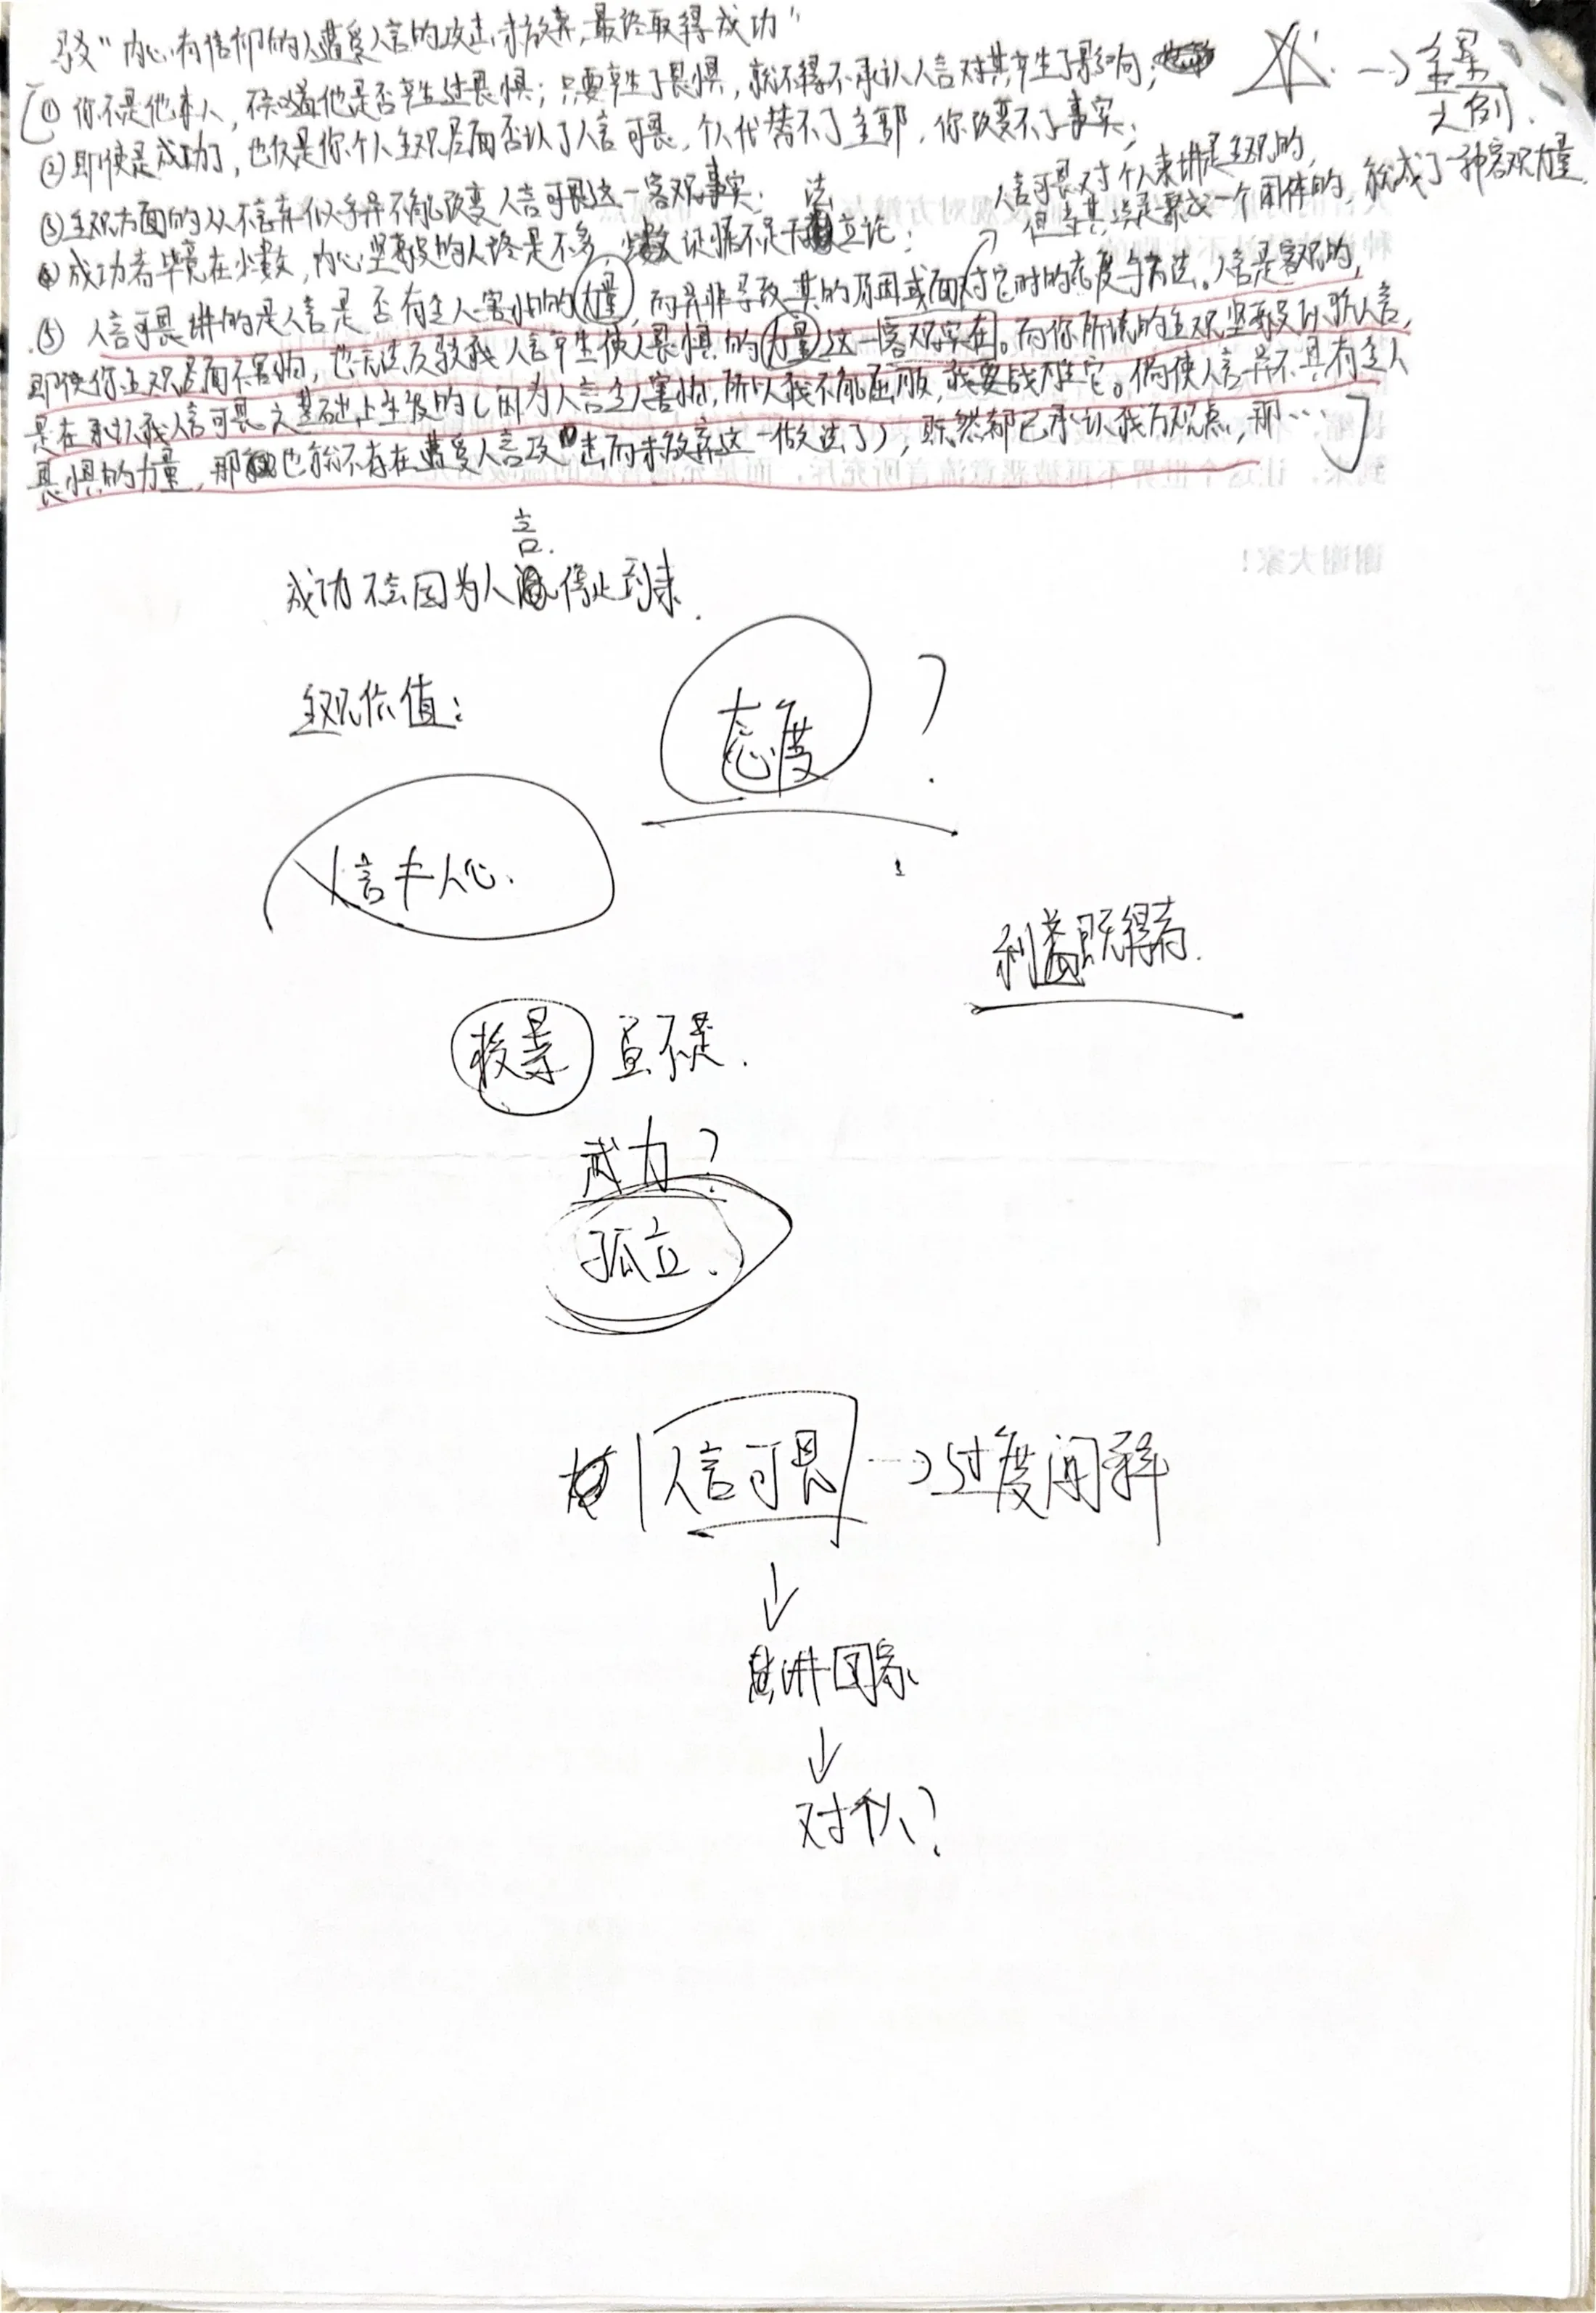 驳"内心有信仰的人遭受人言的攻击未放弃,最终取得成功"
①你不是他本人,不知道他是否产生过畏惧;只要产生了畏惧,就不得不承认人言对其产生了影响;
→
之例.
②即使是成功了,也仅是你个人主观层面否认了人言可畏,个人代替不了全部,你改变不了事实;
③主观方面的从不言弃似乎并不能改变人言可畏这一客观事实;
人言可畏对个人来讲是主观的,
但当其 聚成一个团体的,就成了一种客观力量.
④成功者毕竟在少数,内心坚毅的人终是不多,少数证据不足 法立论;
⑤人言可畏讲的是人言是否有令人害怕的力量,而并非导致其的原因或面对它时的态度与方法。人言是客观的,
即使你主观层面不害怕,也无法反驳我人言产生使人畏惧的力量这一客观实在。而你所说的主观坚毅 人言,
是在承认我人言可畏之基础上产生的(因为人言令人害怕,所以我不能屈服,我要战胜它。倘使人言并不具有令人
畏惧的力量,那 也就不存在遭受人言攻击而未放弃这一做法了),既然都已承认我方观点,那…
成功不会因为人言停止到来.
主观价值:
态度?
人言≠人心.
利益既得者.
并不是.
武力?
孤立.
人言可畏→过度阐释
↓
讲国家
↓
对个人?
种
到来,让这个世界不再被恶意流言所充斥,而是充满善意的温暖
谢谢大家!